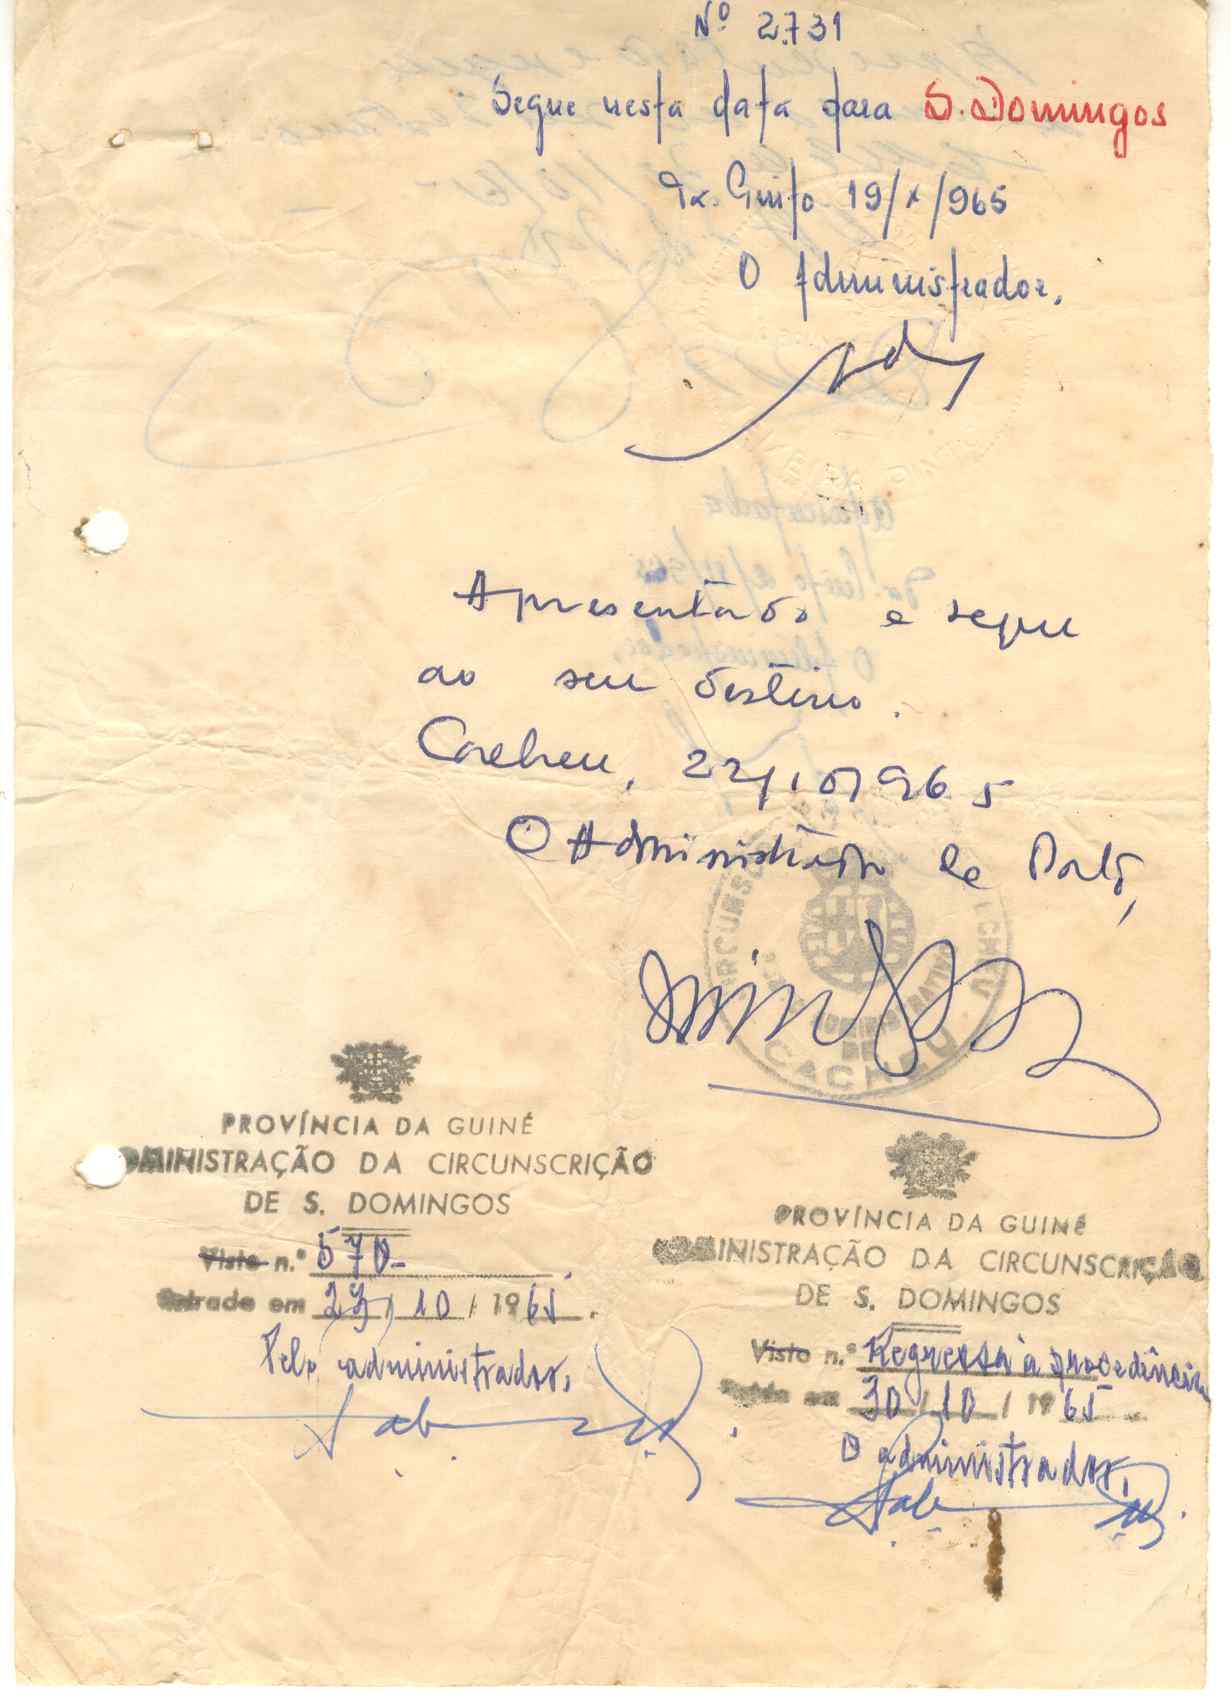 Nº 2.731
Segue nesta data para S. Domingos
19/X/965
O Administrador,
Apresentado e segue
ao seu destino.
Cacheu, 22/10/965
O Administrador de Posto,
CACHEU
PROVÍNCIA DA GUINÉ
ADMINISTRAÇÃO DA CIRCUNSCRIÇÃO
DE S. DOMINGOS
Visto n.º 570
Entrada em 23/10/1965.
Pelo administrador,
PROVÍNCIA DA GUINÉ
ADMINISTRAÇÃO DA CIRCUNSCRIÇÃO
DE S. DOMINGOS
Visto n.º Regressa à procedência
em 30/10/1965
O administrador,